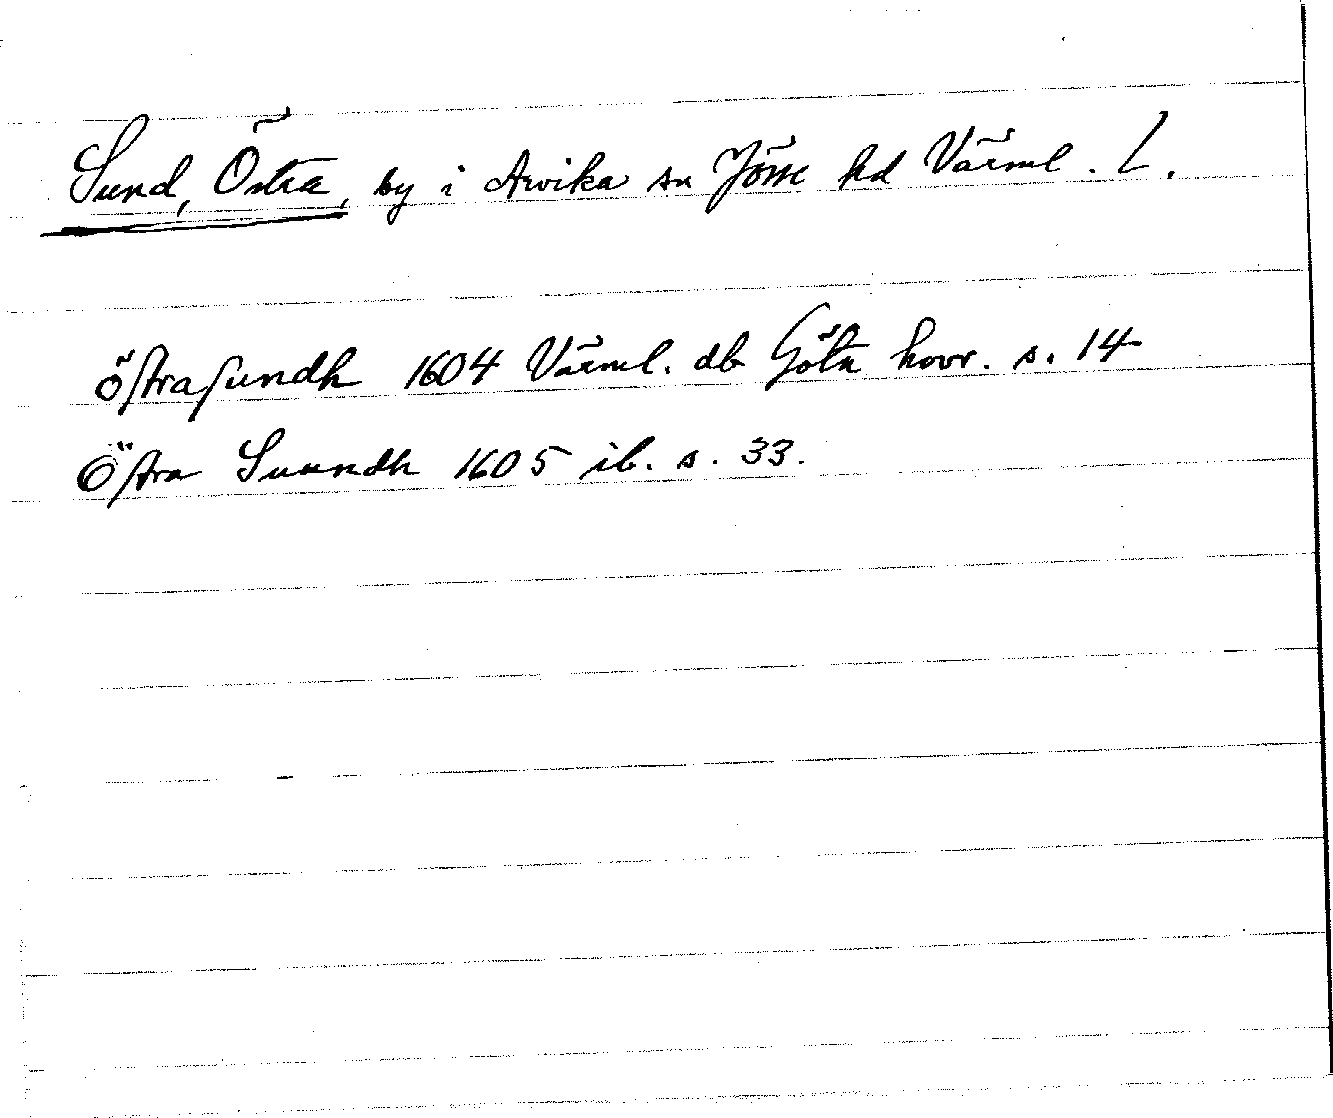 Sund, Östra, by i Arvika sn Jösse hd Värml. L.
östrasundh 1604 Värml. db Göta hovr. s. 14
Östra Suundh 1605 ib. s. 33.